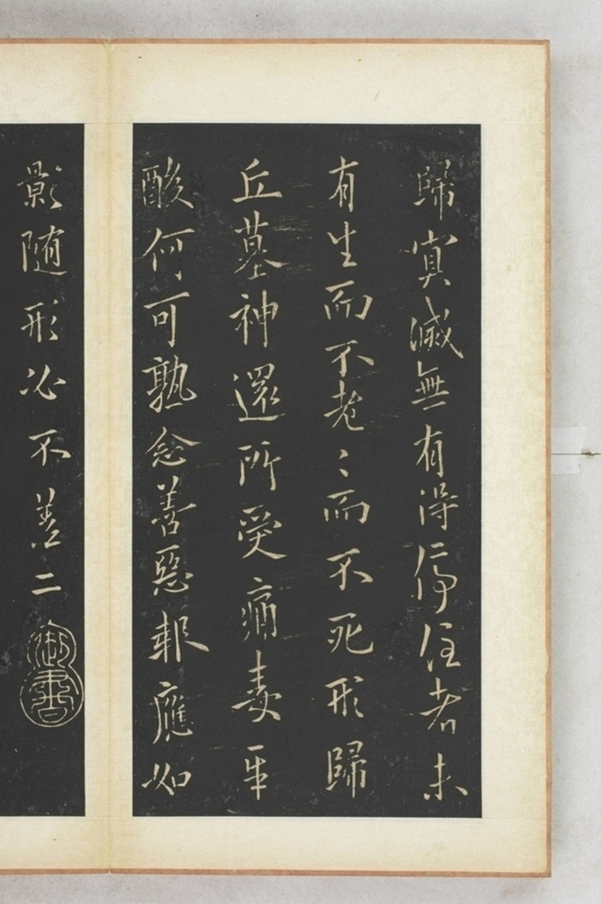 歸冥滅無有得停住者未
有生而不老〻而不死形歸
丘墓神還所受痛毒辛
酸何可熟念善惡報應如
影随形必不善二
御書